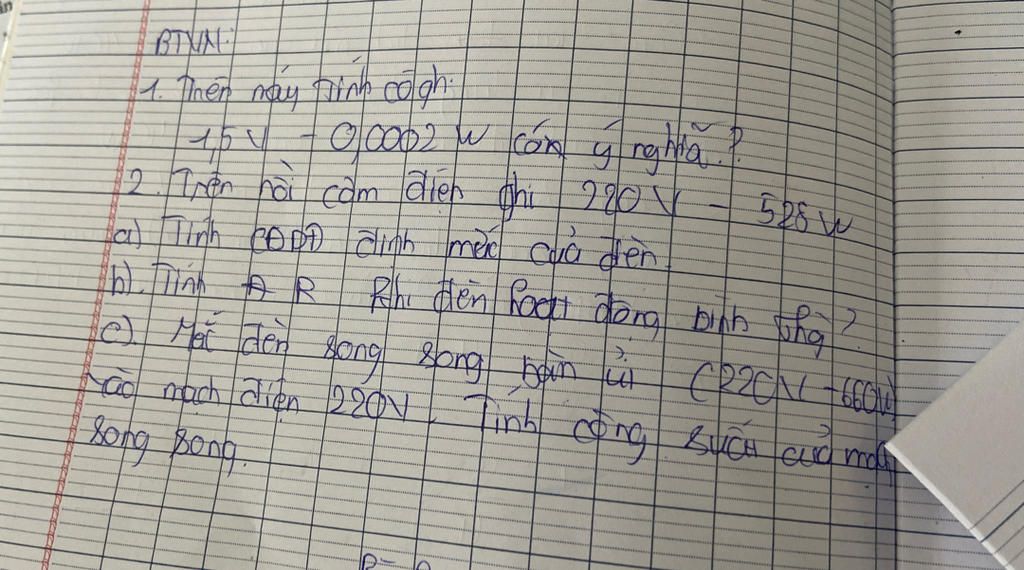 BTVN:
1. Trên máy tính có gh:
1,5V - 0,0002 W có ý nghĩa?
2. Trên nồi cơm điện ghi 220V - 528W
a) Tính CĐDĐ định mức của đèn
b). Tính R khi đèn hoạt động bình thg?
c) Mắc đèn song song bàn ủi (220V - 660W)
vào mạch điện 220V. Tính công suất của mạch
song song.